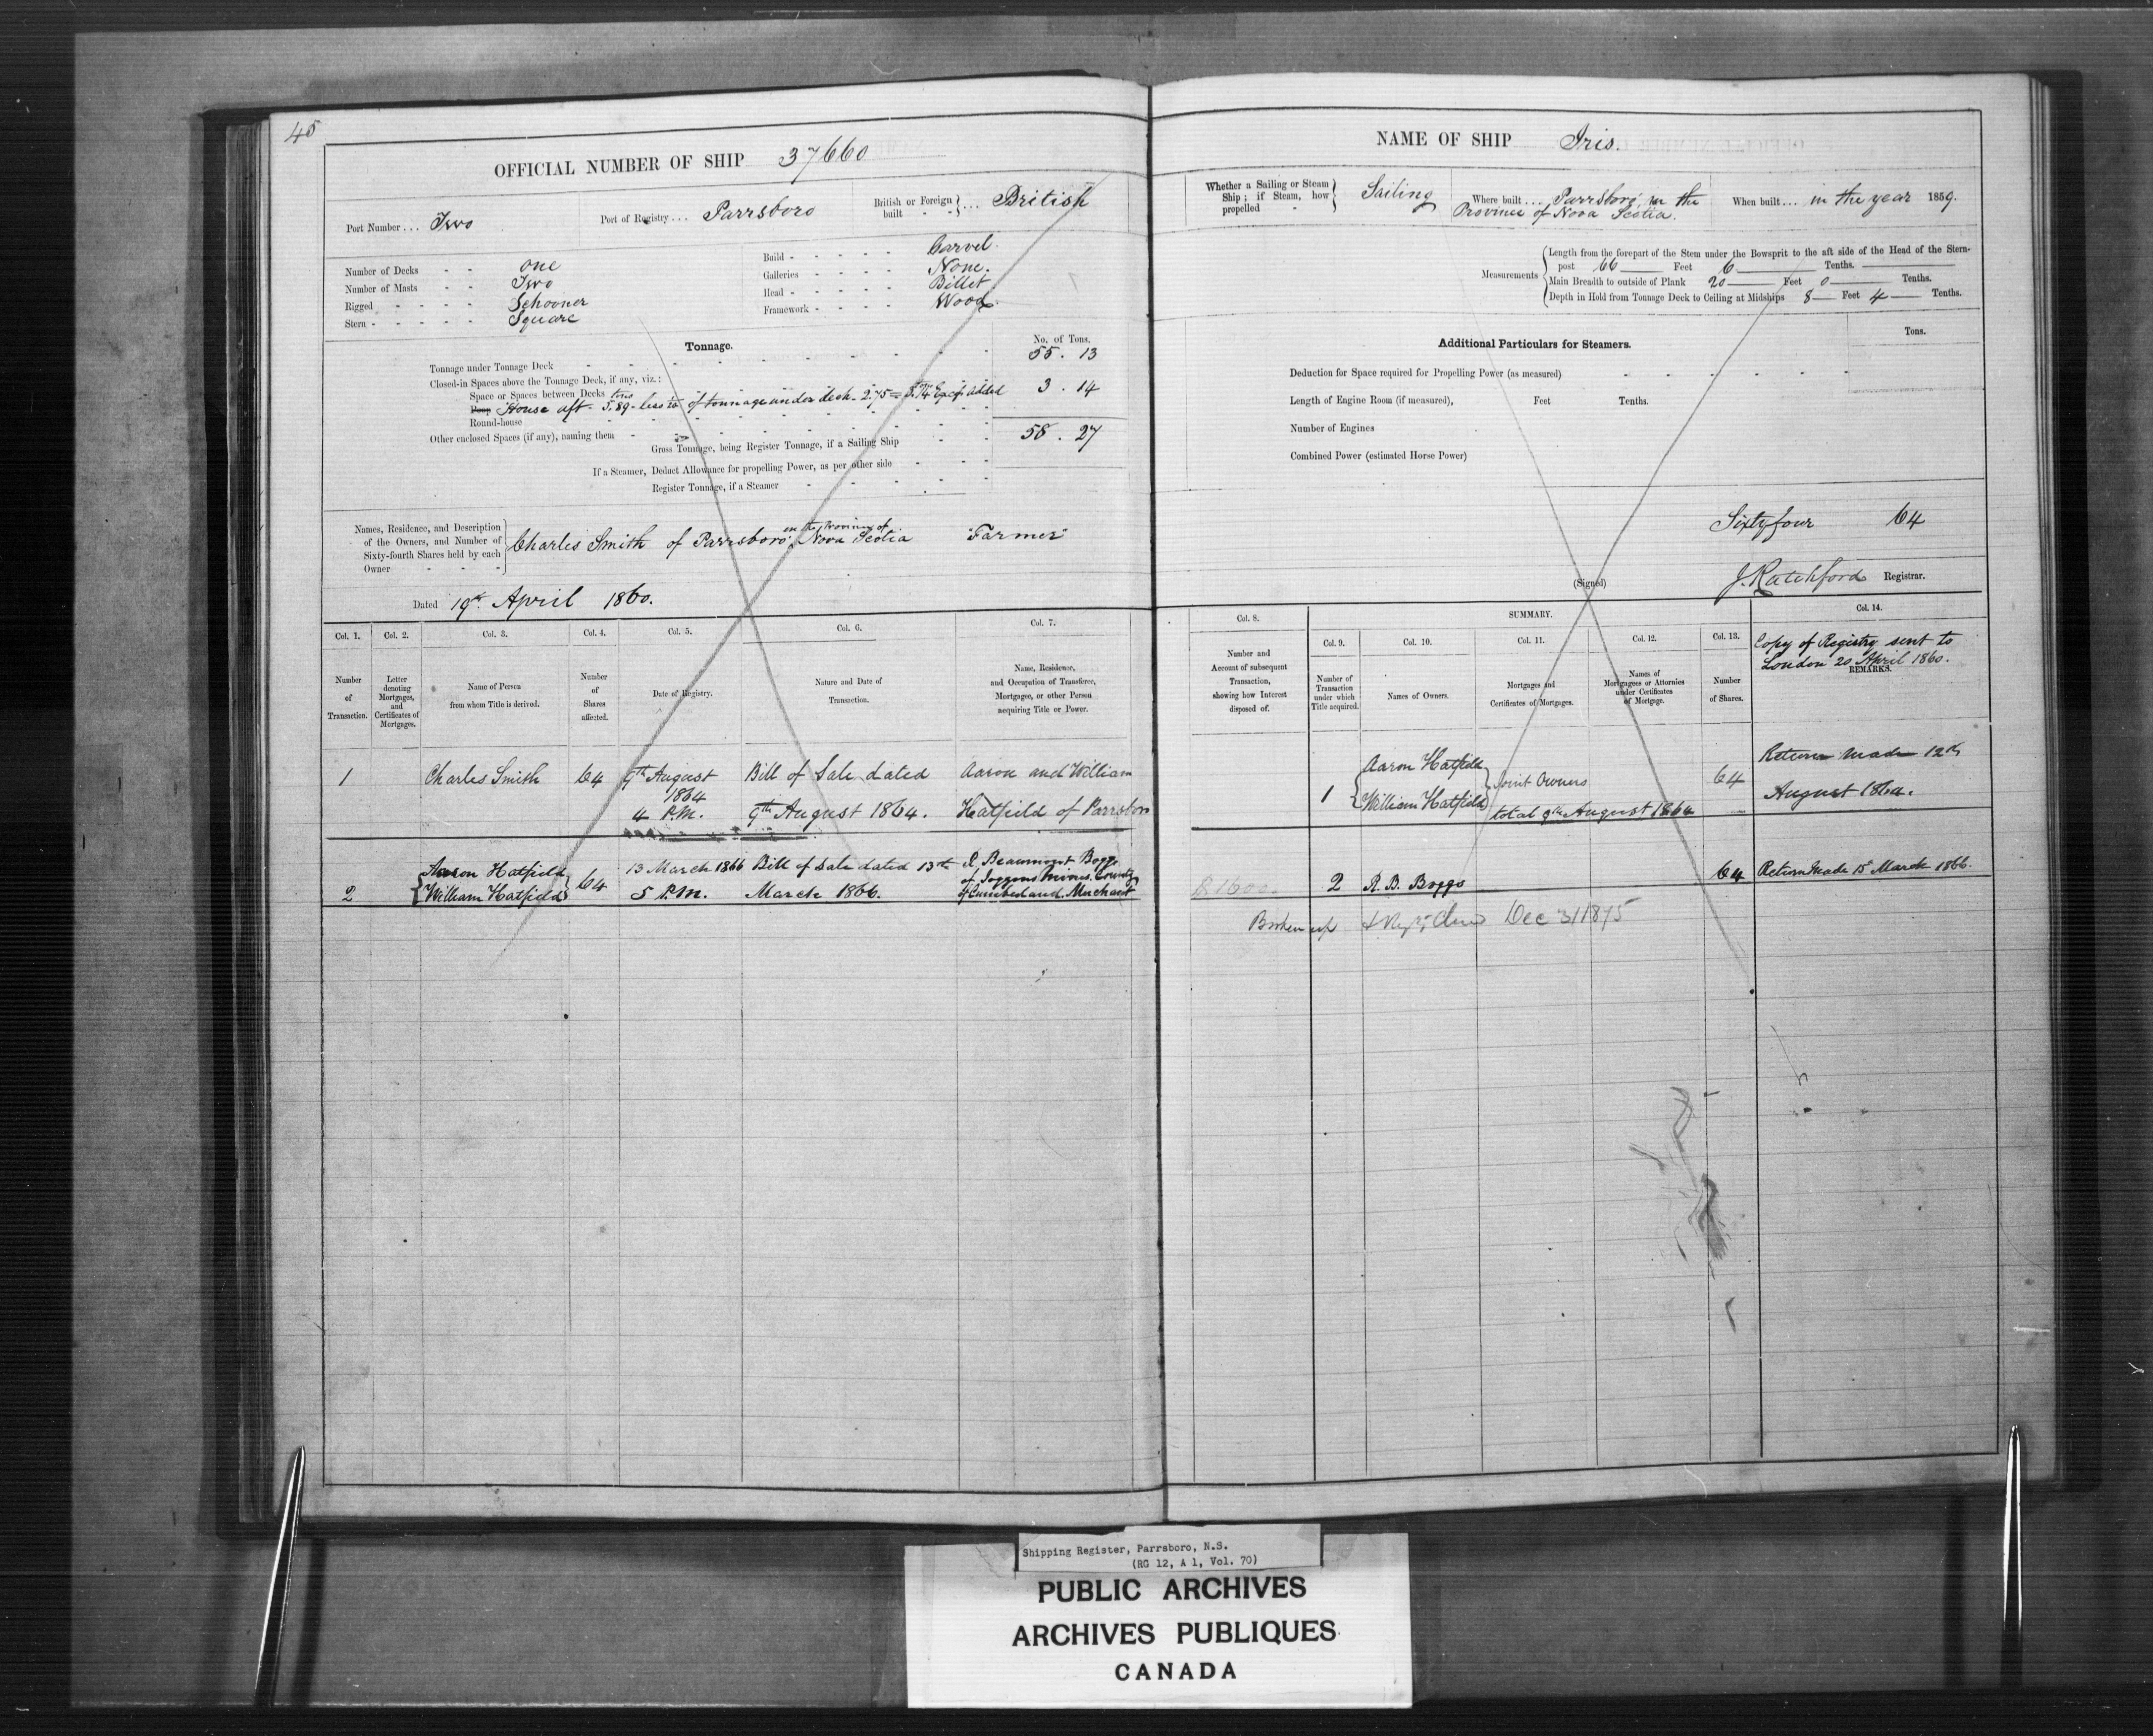 45
OFFICIAL NUMBER OF SHIP 37660
Port Number ... Two
Port of Registry ... Parrsboro
British or Foreign built ... British
Number of Decks - - one
Number of Masts - - Two
Rigged - - - - Schooner
Stern - - - - - Square
Build - - - - - Carvel.
Galleries - - - - None.
Head - - - - - Billet
Framework - - - Wood.
Tonnage.
No. of Tons.
Tonnage under Tonnage Deck 55 . 13
Closed-in Spaces above the Tonnage Deck, if any, viz.:
Space or Spaces between Decks
Poop House aft - tons 5.89 - less of tonnage under deck - 2.75 = 3.14 added 3 . 14
Round-house
Other enclosed Spaces (if any), naming them
Gross Tonnage, being Register Tonnage, if a Sailing Ship 58 . 27
If a Steamer, Deduct Allowance for propelling Power, as per other side
Register Tonnage, if a Steamer
Names, Residence, and Description of the Owners, and Number of Sixty-fourth Shares held by each Owner
Charles Smith of Parrsboro' in the Province of Nova Scotia "Farmer"
Dated 19th April 1860.
Col. 1. Col. 2. Col. 3. Col. 4. Col. 5. Col. 6. Col. 7.
Number of Transaction.
Letter denoting Mortgages, and Certificates of Mortgages.
Name of Person from whom Title is derived.
Number of Shares affected.
Date of Registry.
Nature and Date of Transaction.
Name, Residence, and Occupation of Transferee, Mortgagee, or other Person acquiring Title or Power.
1 Charles Smith 64 9th August Bill of Sale dated Aaron and William
1864
4 P.M. 9th August 1864. Hatfield of Parrsboro
Aaron Hatfield 64 13 March 1866 Bill of Sale dated 13th R. Beaumont Boggs
of Joggins Mines. County
2 William Hatfield 5 P.M. March 1866. of Cumberland. Merchant
NAME OF SHIP Iris.
Whether a Sailing or Steam Ship; if Steam, how propelled - Sailing
Where built ... Parrsboro', in the
Province of Nova Scotia.
When built ... in the year 1859.
Measurements
Length from the forepart of the Stem under the Bowsprit to the aft side of the Head of the Stern-
post 66 Feet 6 Tenths.
Main Breadth to outside of Plank 20 Feet 0 Tenths.
Depth in Hold from Tonnage Deck to Ceiling at Midships 8 Feet 4 Tenths.
Additional Particulars for Steamers.
Tons.
Deduction for Space required for Propelling Power (as measured)
Length of Engine Room (if measured), Feet Tenths.
Number of Engines
Combined Power (estimated Horse Power)
Sixtyfour 64
(Signed) J. Ratchford Registrar.
SUMMARY.
Col. 8. Col. 9. Col. 10. Col. 11. Col. 12. Col. 13. Col. 14.
Number and Account of subsequent Transaction, showing how Interest disposed of.
Number of Transaction under which Title acquired.
Names of Owners.
Mortgages and Certificates of Mortgages.
Names of Mortgagees or Attornies under Certificates of Mortgage.
Number of Shares.
Copy of Registry sent to
London 20 April 1860.
REMARKS.
1 Aaron Hatfield Joint Owners 64 Return made 12th
William Hatfield total 9th August 1864 August 1864.
2 R. B. Boggs 64 Return Made 15th March 1866.
Broken up Dec 31 1875
Shipping Register, Parrsboro, N.S.
(RG 12, A 1, Vol. 70)
PUBLIC ARCHIVES
ARCHIVES PUBLIQUES
CANADA